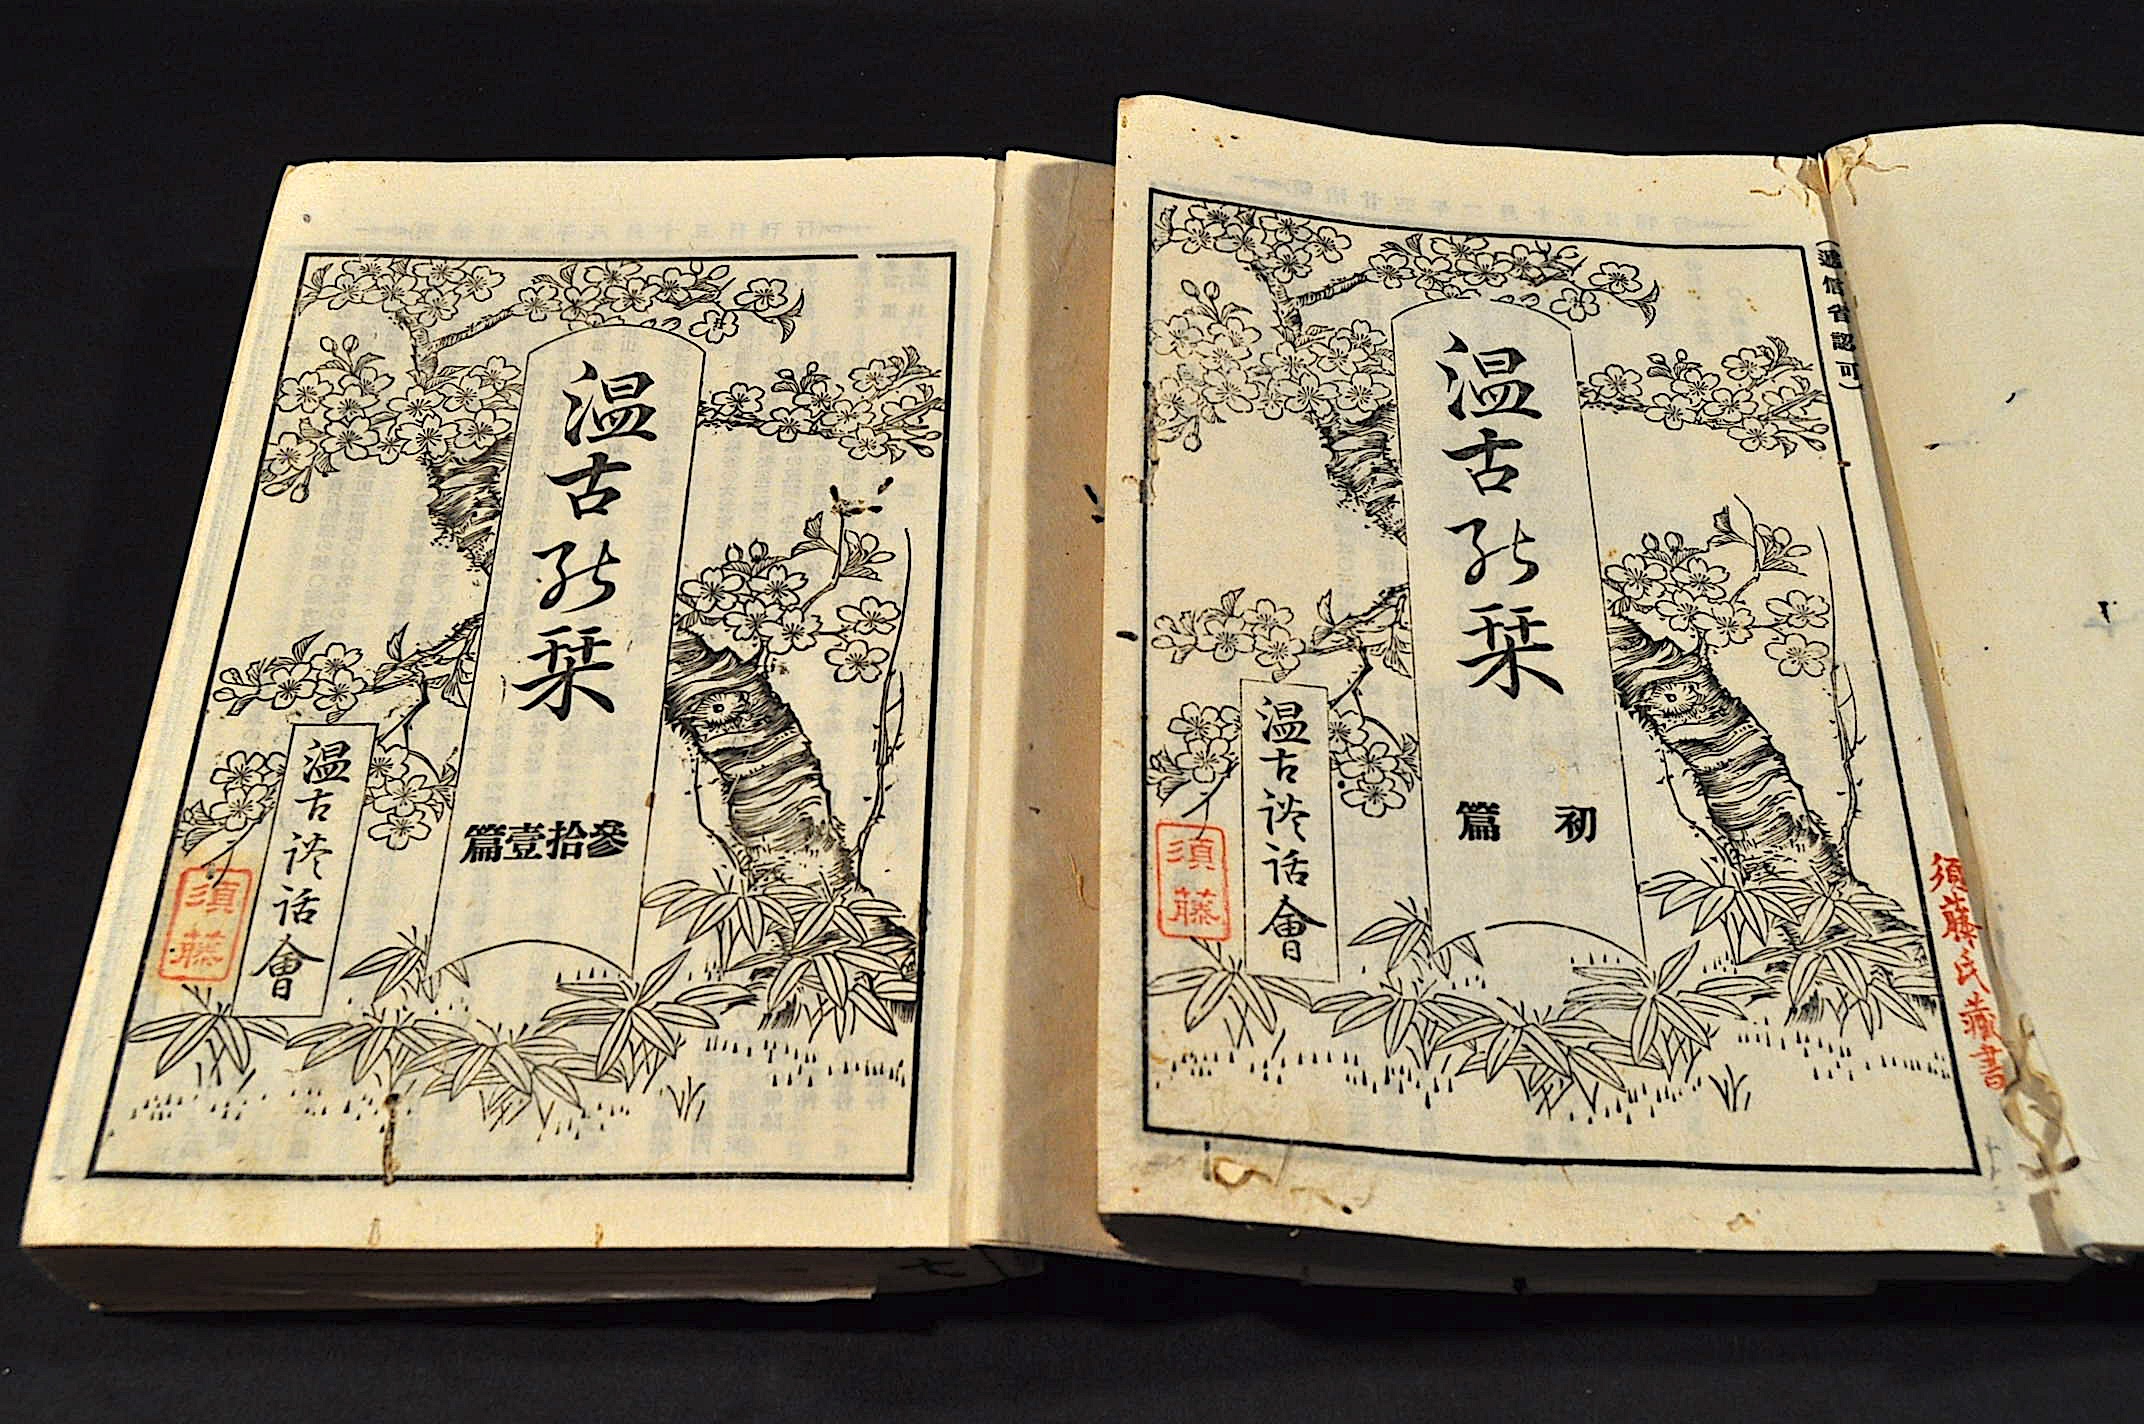 温古能栞
參拾壹篇
温古談話會
須藤
(遞信省認可)
温古能栞
初篇
温古談話會
須藤
須藤氏藏書